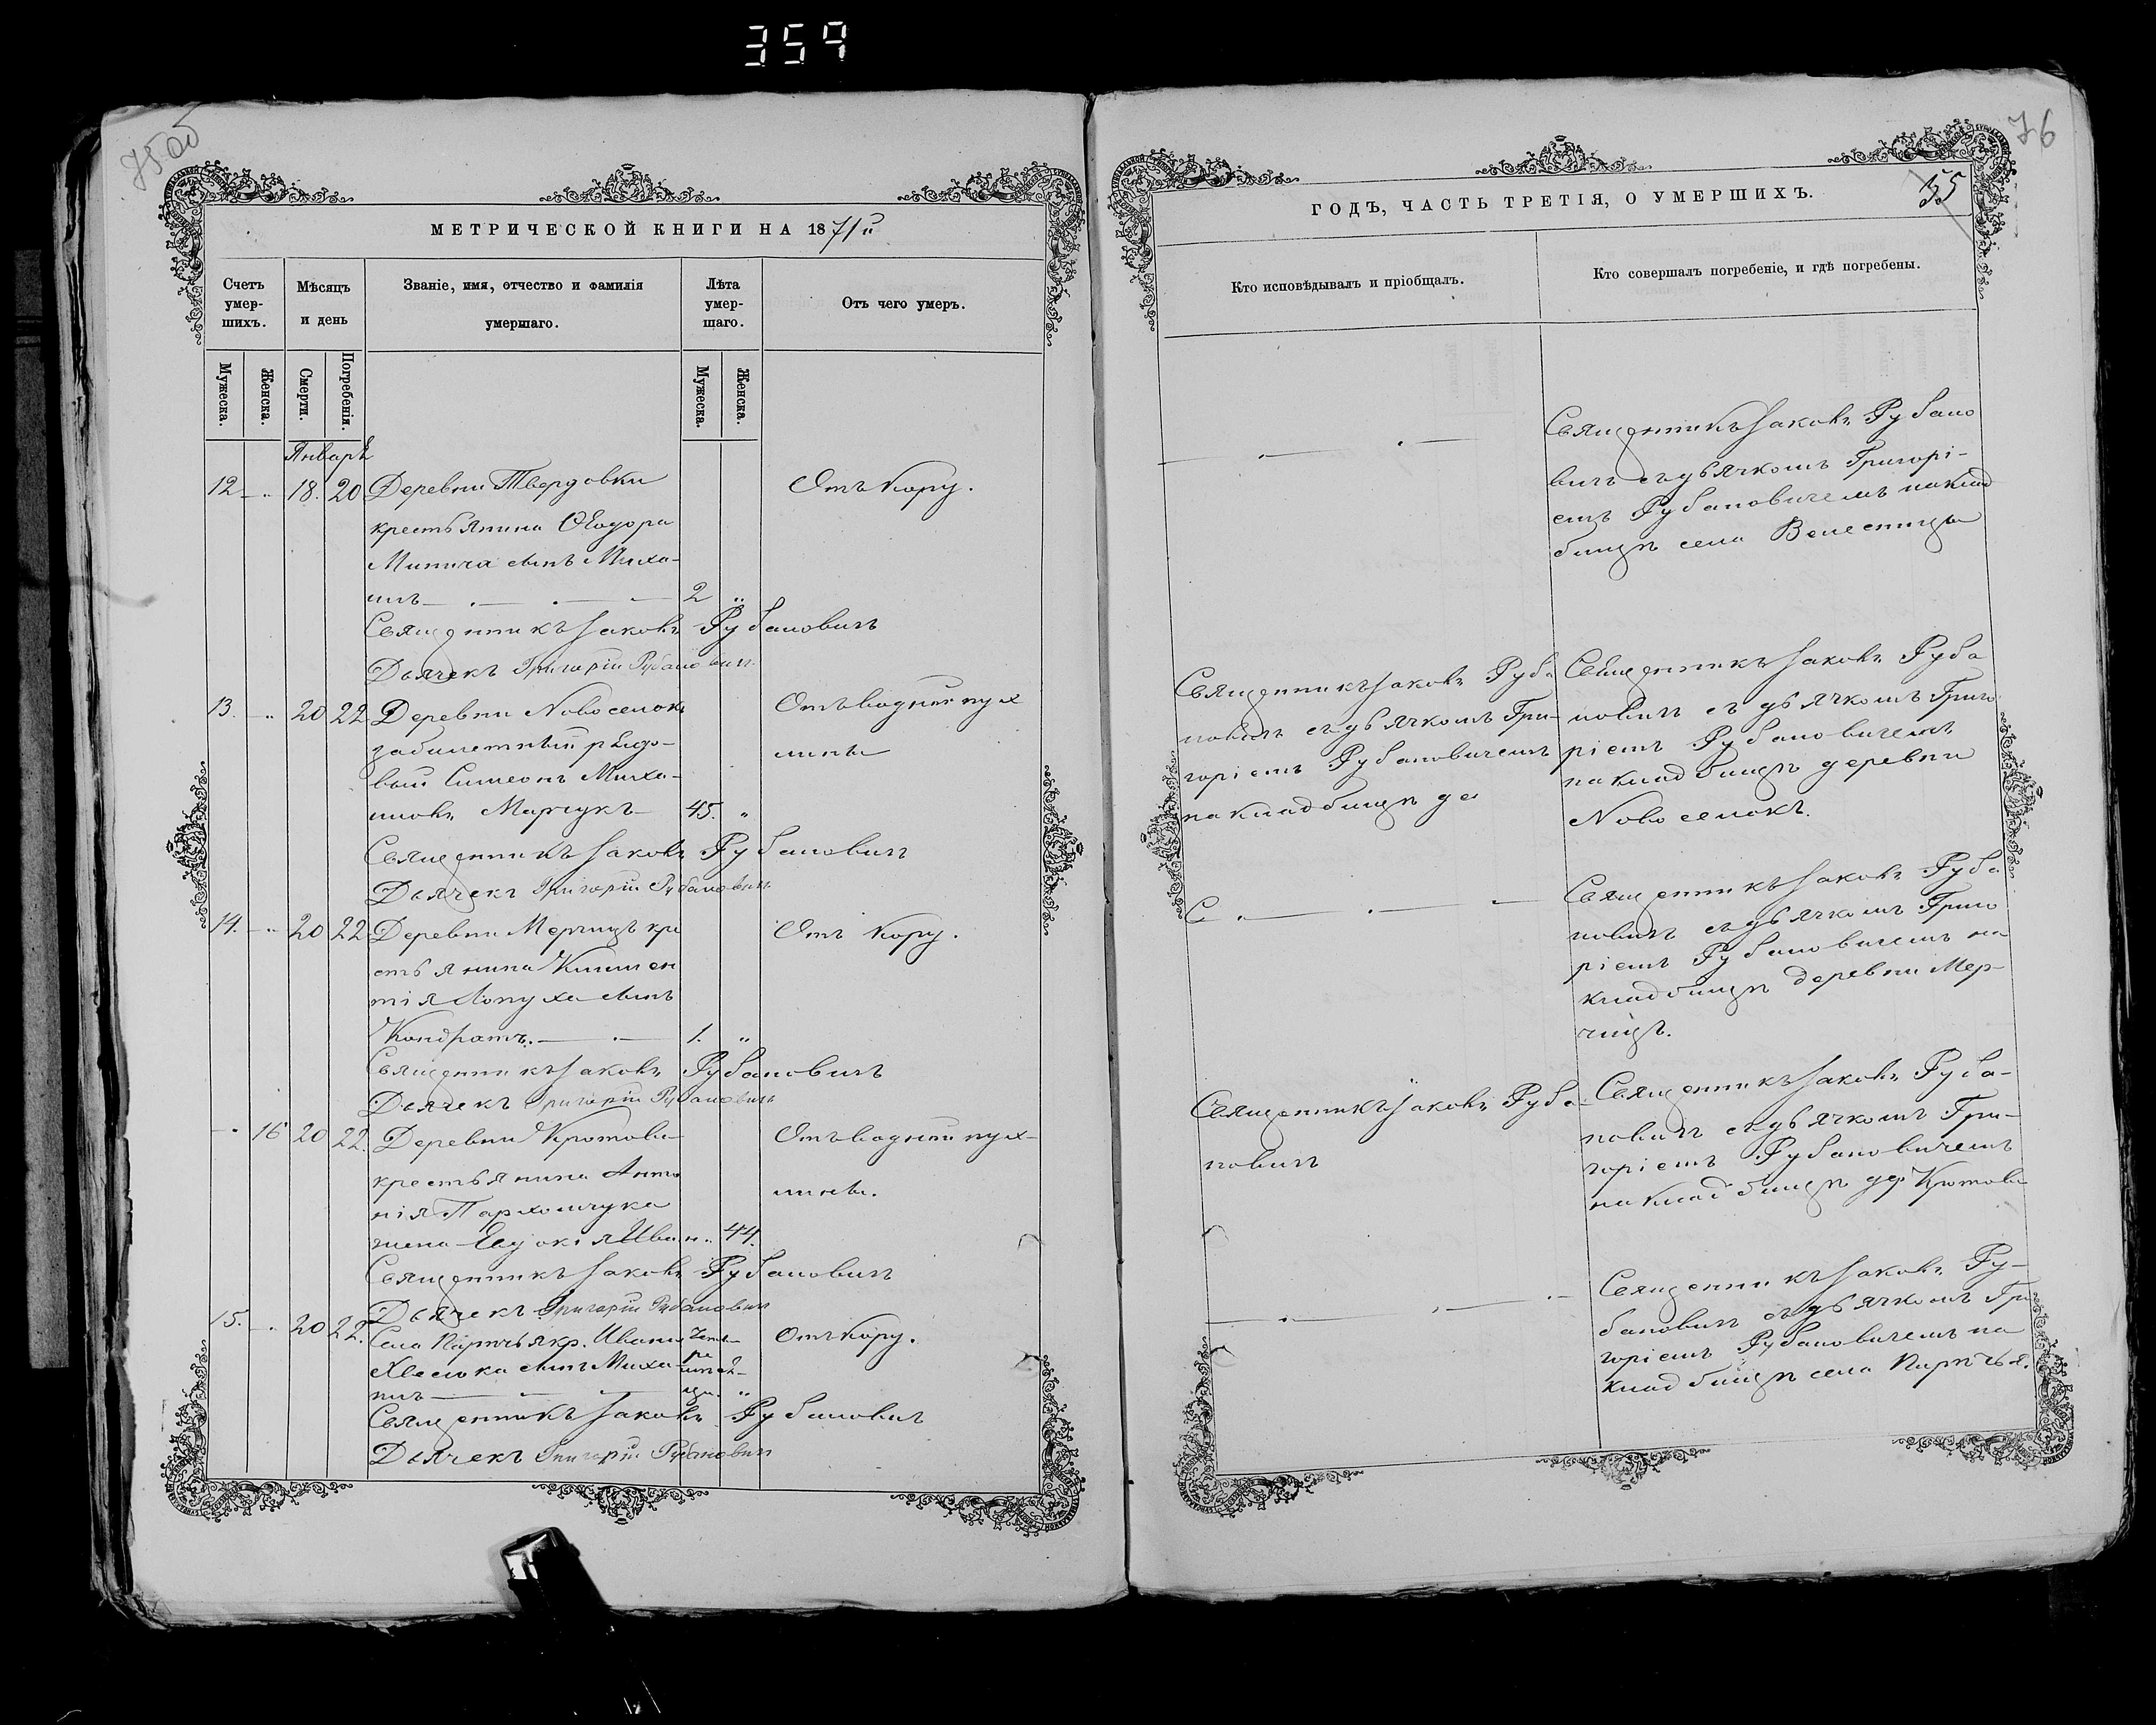 359
76
МЕТРИЧЕСКОЙ КНИГИ НА 1871й
Счетъ умер-шихъ.
Мѣсяцъ и день
Званіе, имя, отчество и фамилія умершаго.
Лѣта умер-шаго.
Отъ чего умеръ.
Мужеска.
Женска.
Смерти.
Погребенія.
Мужеска.
Женска.
Январѣ
12 - „ 18. 20 Деревни Твердовки
Отъ кору.
крестьянина Ѳеодора
Минича сынъ Миха-
илъ 2 „
Священникъ Іаковъ Рубановичъ
Дьячекъ Григорій Рубановичъ
13. - „ 20 22 Деревни Новоселокъ
Отъ водяной пух
забилетный рядо-
лины
вый Симеонъ Миха-
иловъ Марчукъ 45. „
Священникъ Іаковъ Рубановичъ
Дьячекъ Григорій Рубановичъ
14. - „ 20 22 Деревни Мерчицъ кре
Отъ кору.
стьянина Климен
тія Лопуха сынъ
Кондратъ. 1. „
Священникъ Іаковъ Рубановичъ
Дьячекъ Григорій Рубановичъ
- „ 16 20 22. Деревни Кротова
Отъ водяной пух-
крестьянина Анто
лины.
нія Пархомчука
жена Евдокія Иван. „ 44.
Священникъ Іаковъ Рубановичъ
Дьячекъ Григорій Рубановичъ
15. - „ 20 22. Села Парѣчья кр. Ивана
Отъ кору.
сынъ Миха-
илъ „
Священникъ Іаковъ Рубановичъ
Дьячекъ Григорій Рубановичъ
ГОДЪ, ЧАСТЬ ТРЕТІЯ, О УМЕРШИХЪ.
55
Кто исповѣдывалъ и пріобщалъ.
Кто совершалъ погребеніе, и гдѣ погребены.
Священникъ Іаковъ Рубано
вичъ съ дьячкомъ Григорі-
емъ Рубановичемъ на клад
бищѣ села Велесницы
Священникъ Іаковъ Руба
новичъ съ дьячкомъ Гри-
горіемъ Рубановичемъ
на кладбищѣ де
Священникъ Іаковъ Руба
новичъ съ дьячкомъ Григо
ріемъ Рубановичемъ
на кладбищѣ деревни
Новоселокъ.
С
Священникъ Іаковъ Руба
новичъ съ дьячкомъ Григо
ріемъ Рубановичемъ на
кладбищѣ деревни Мер-
чицъ.
Священникъ Іаковъ Руба-
новичъ
Священникъ Іаковъ Руба-
новичъ съ дьячкомъ Гри-
горіемъ Рубановичемъ
на кладбищѣ дер Кротова
Священникъ Іаковъ Ру-
бановичъ съ дьячкомъ Гри
горіемъ Рубановичемъ на
кладбищѣ села Парѣчья.